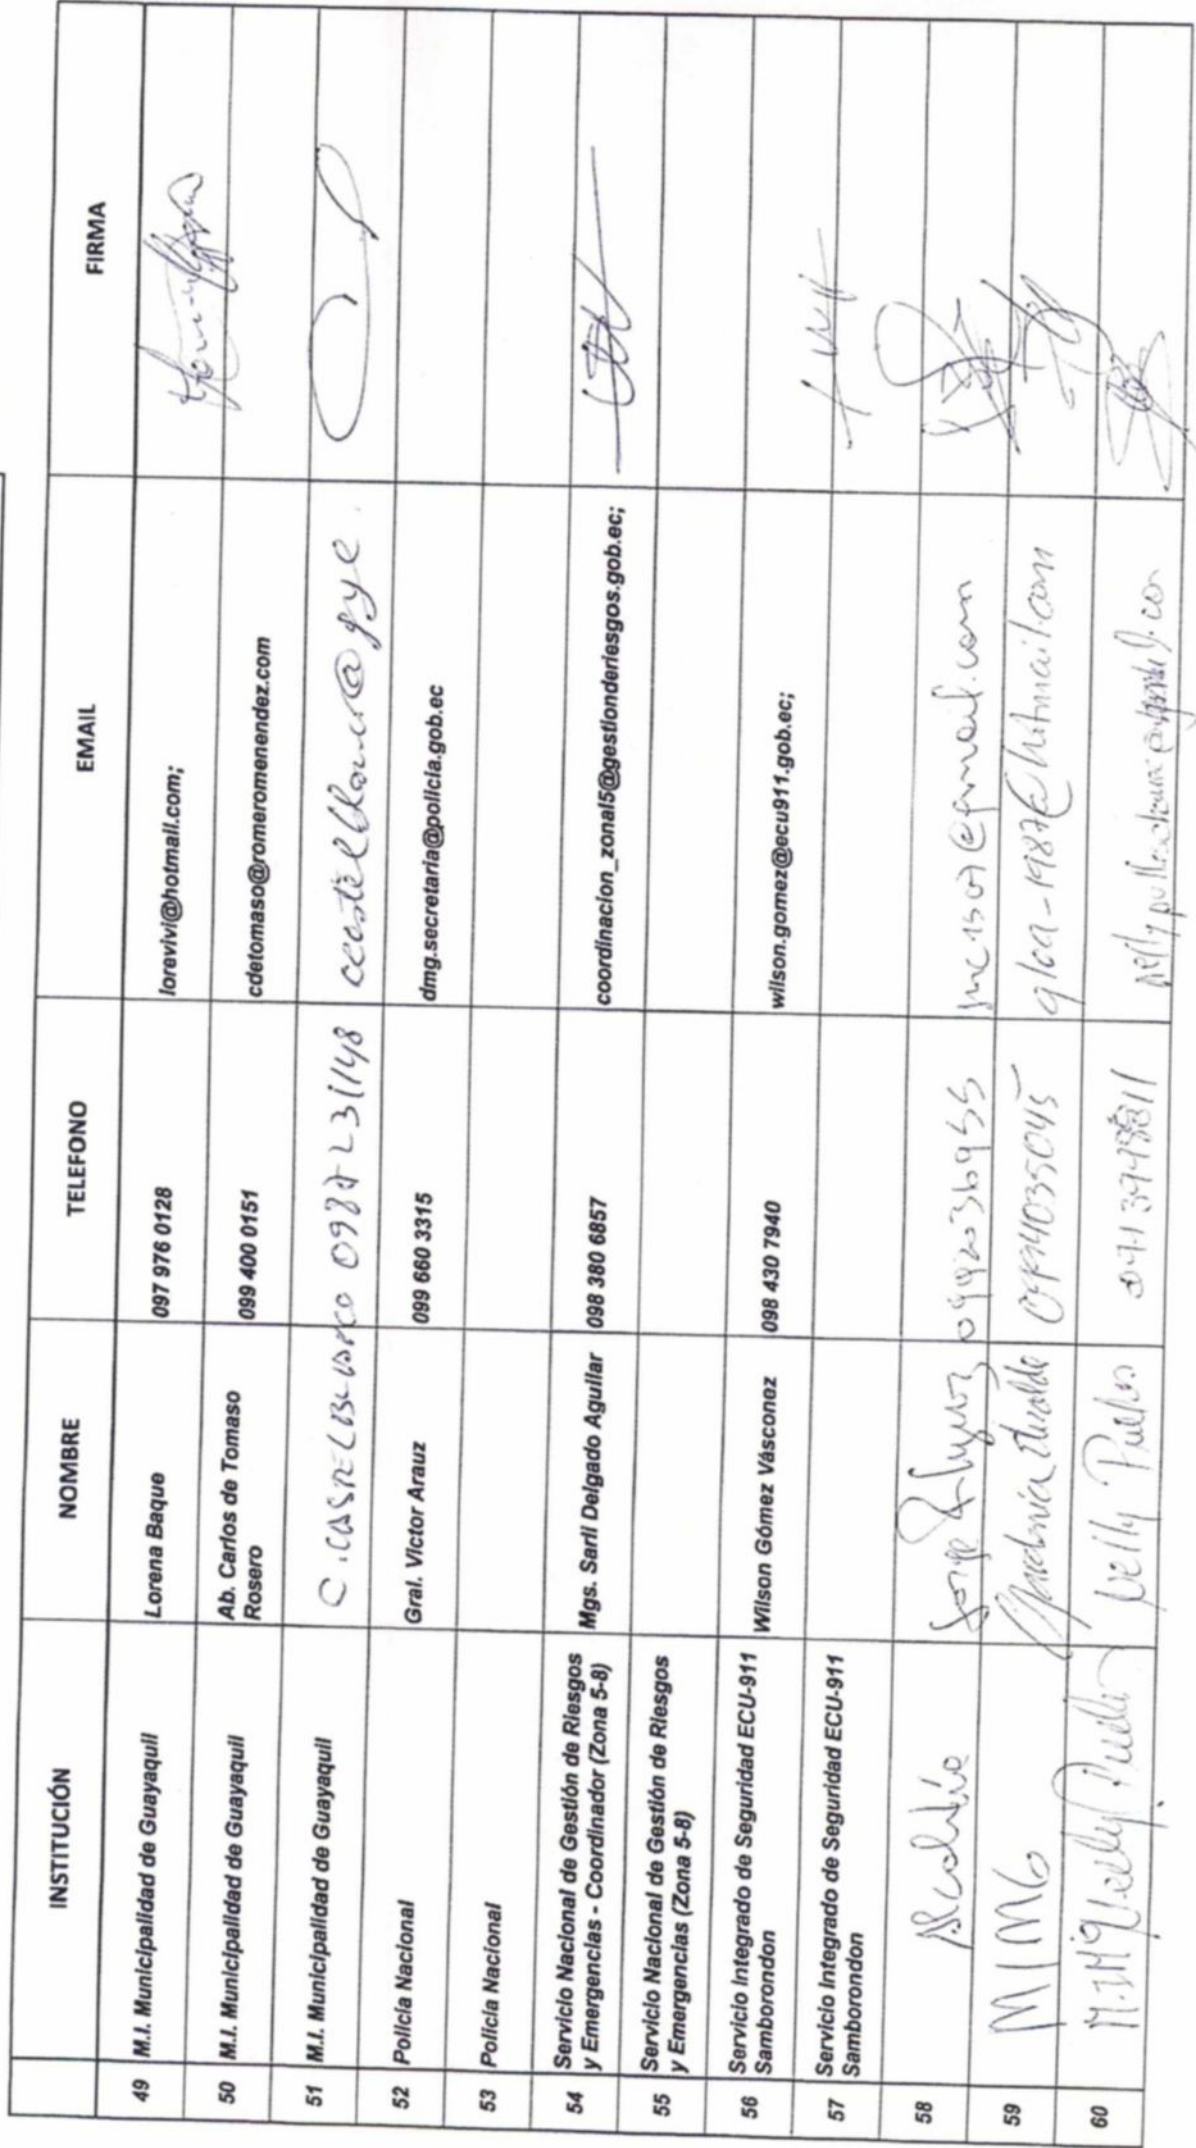 INSTITUCIÓN NOMBRE TELEFONO EMAIL FIRMA
49 M.I. Municipalidad de Guayaquil Lorena Baque 097 976 0128 lorevivi@hotmail.com;
50 M.I. Municipalidad de Guayaquil Ab. Carlos de Tomaso Rosero 099 400 0151 cdetomaso@romeromenendez.com
51 M.I. Municipalidad de Guayaquil
52 Policía Nacional Gral. Victor Arauz 099 660 3315 dmg.secretaria@policia.gob.ec
53 Policía Nacional
54 Servicio Nacional de Gestión de Riesgos
y Emergencias - Coordinador (Zona 5-8) Mgs. Sarli Delgado Aguilar 098 380 6857 coordinacion_zonal5@gestionderiesgos.gob.ec;
55 Servicio Nacional de Gestión de Riesgos
y Emergencias (Zona 5-8)
56 Servicio Integrado de Seguridad ECU-911
Samborondon Wilson Gómez Vásconez 098 430 7940 wilson.gomez@ecu911.gob.ec;
57 Servicio Integrado de Seguridad ECU-911
Samborondon
58 Alcaldía Jorge 0992036955
59 MIMG
60 Nelly